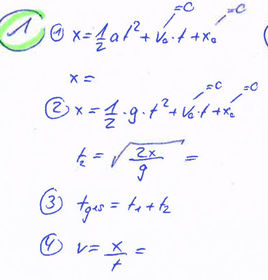 1
① x = 1/2 at² + v₀·t + x₀ =0 =0
x =
② x = 1/2 · g · t² + v₀·t + x₀ =0 =0
t₂ = √(2x/g) =
③ tges = t₁ + t₂
④ v = x/t =